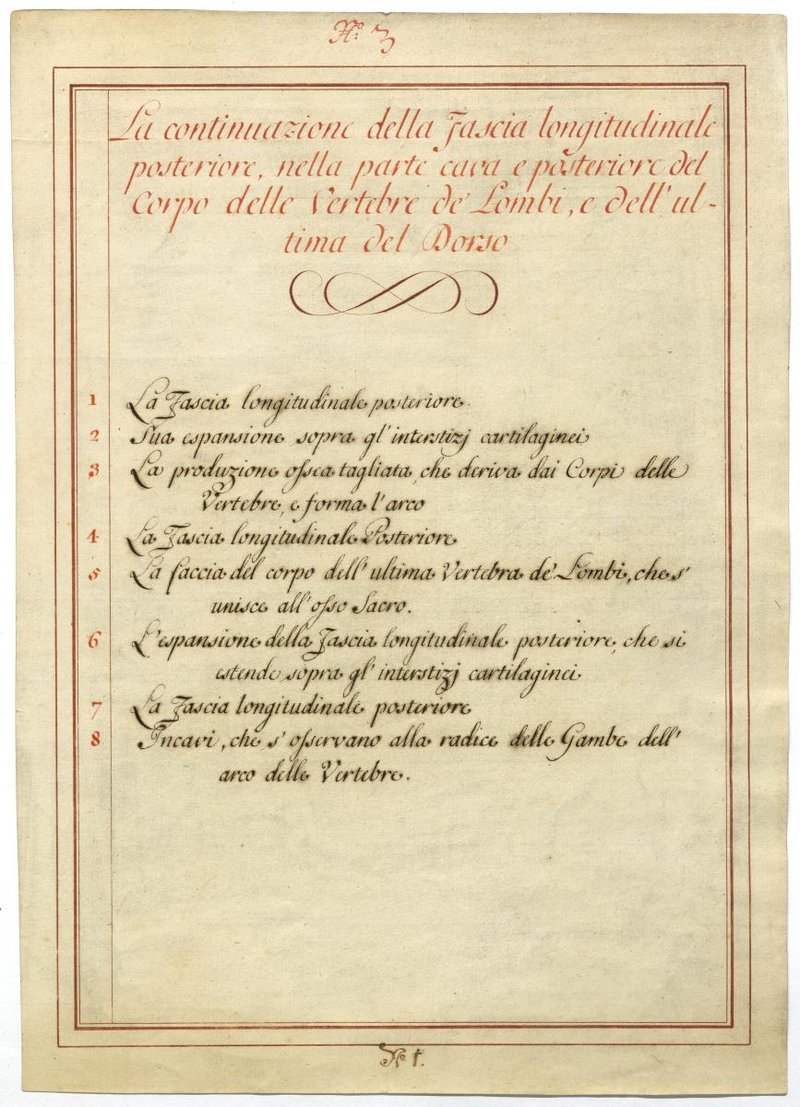 N.º 3
La continuazione della Fascia longitudinale
posteriore, nella parte cava e posteriore del
Corpo delle Vertebre de' Lombi, e dell' ul-
tima del Dorso
1 La Fascia longitudinale posteriore.
2 Sua espansione sopra gl' interstizj cartilaginei
3 La produzione ossea tagliata, che deriva dai Corpi delle
Vertebre, e forma l'arco
4 La Fascia longitudinale Posteriore
5 La faccia del corpo dell' ultima Vertebra de' Lombi, che s'
unisce all' osso Sacro.
6 L'espansione della Fascia longitudinale posteriore, che si
estende sopra gl' interstizj cartilaginei
7 La Fascia longitudinale posteriore
8 Incavi, che s' osservano alla radice delle Gambe dell'
arco delle Vertebre.
Nº 1.